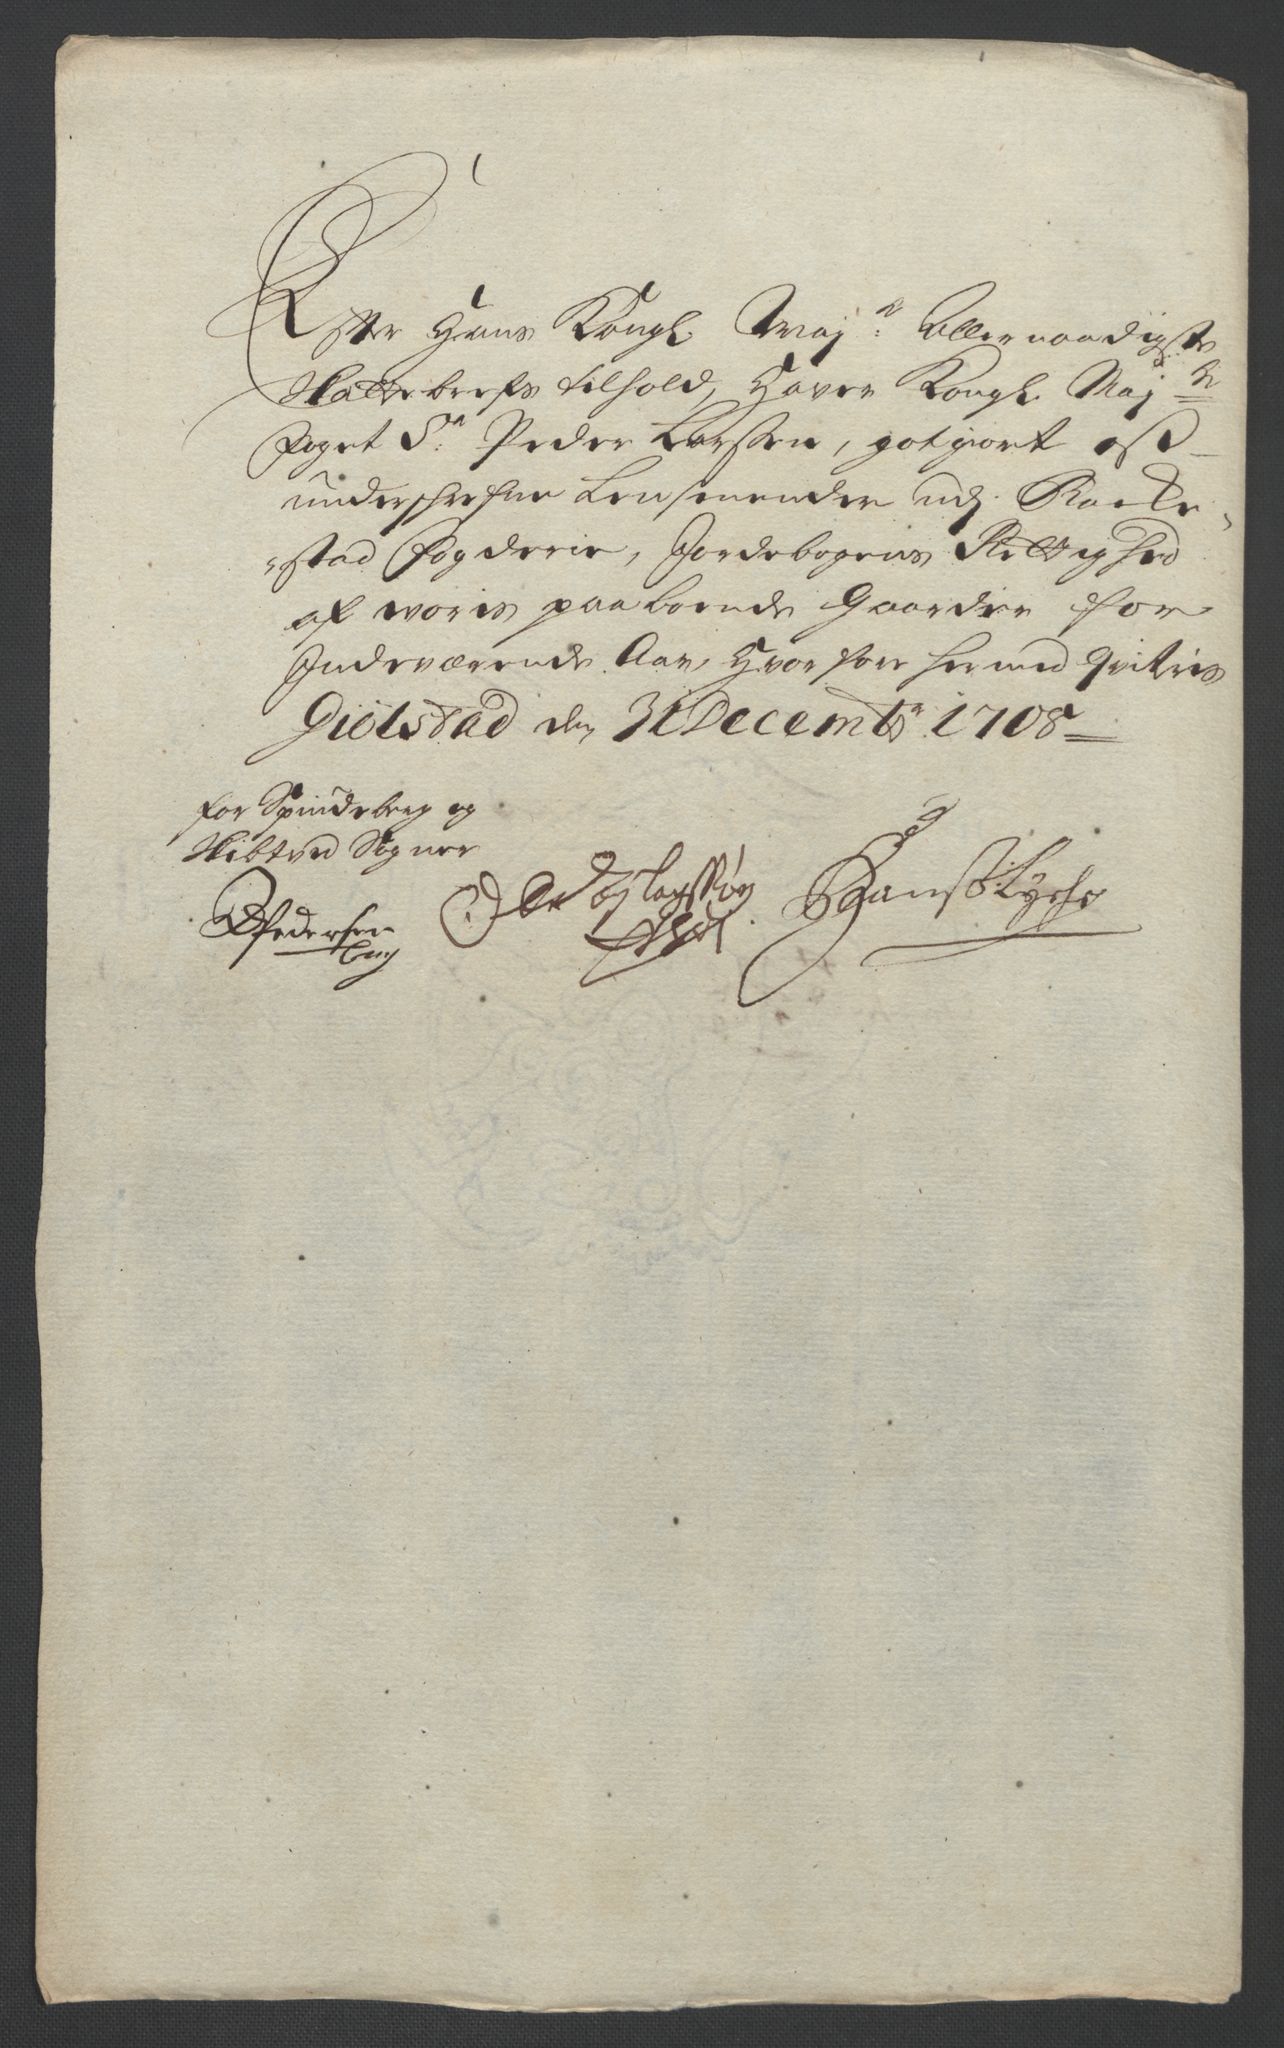 Efter Hans Kongl. Maj:ts Allernaadigste
Skattebrefs tilhold, Haver Kongl. Maj:ts
foget Sr. Peder Larssen, got giort oss
underschrefne Lensmender udj Racke-
stad fogderie, Jordebogens Rettighed
af woris paaboende Gaarder for
Indeværende Aar, Hvorfore hermed qviteris
Giölstad den 31 Decembr 1708
for Spindeberg og
Skibtved Sogner
Pedersen
Hans Lyche